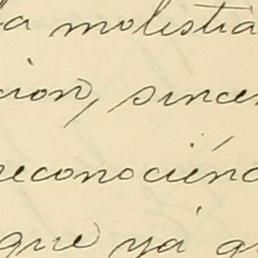 la molestia
cion, sincer
reconocién
que yá qu